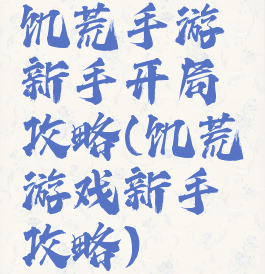 饥荒手游
新手开局
攻略(饥荒
游戏新手
攻略)